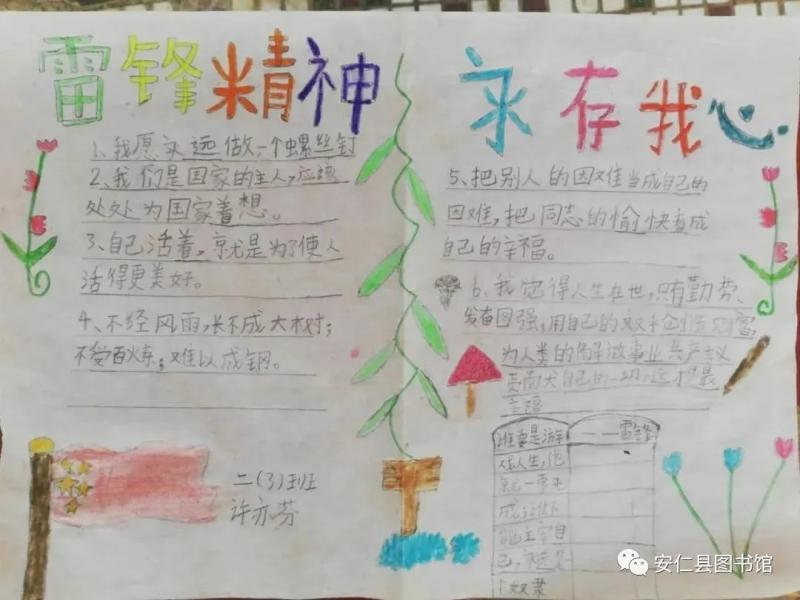 雷锋精神
永存我心
1、我愿永远做一个螺丝钉
2、我们是国家的主人,应该
处处为国家着想。
3、自己活着,就是为了使人
活得更美好。
4、不经风雨,长不成大树;
不受百炼;难以成钢。
二(3)班
许亦芬
5、把别人的困难当成自己的
困难,把同志的愉快看成
自己的幸福。
6、我觉得人生在世,只有勤劳、
发奋图强,用自己的双手创造财富
为人类的解放事业共产主义
贡献自己的一切,这才是最
谁要是游
戏人生,他
就一事无
成;谁不
能主宰自
己,
个奴隶
——雷锋
安仁县图书馆